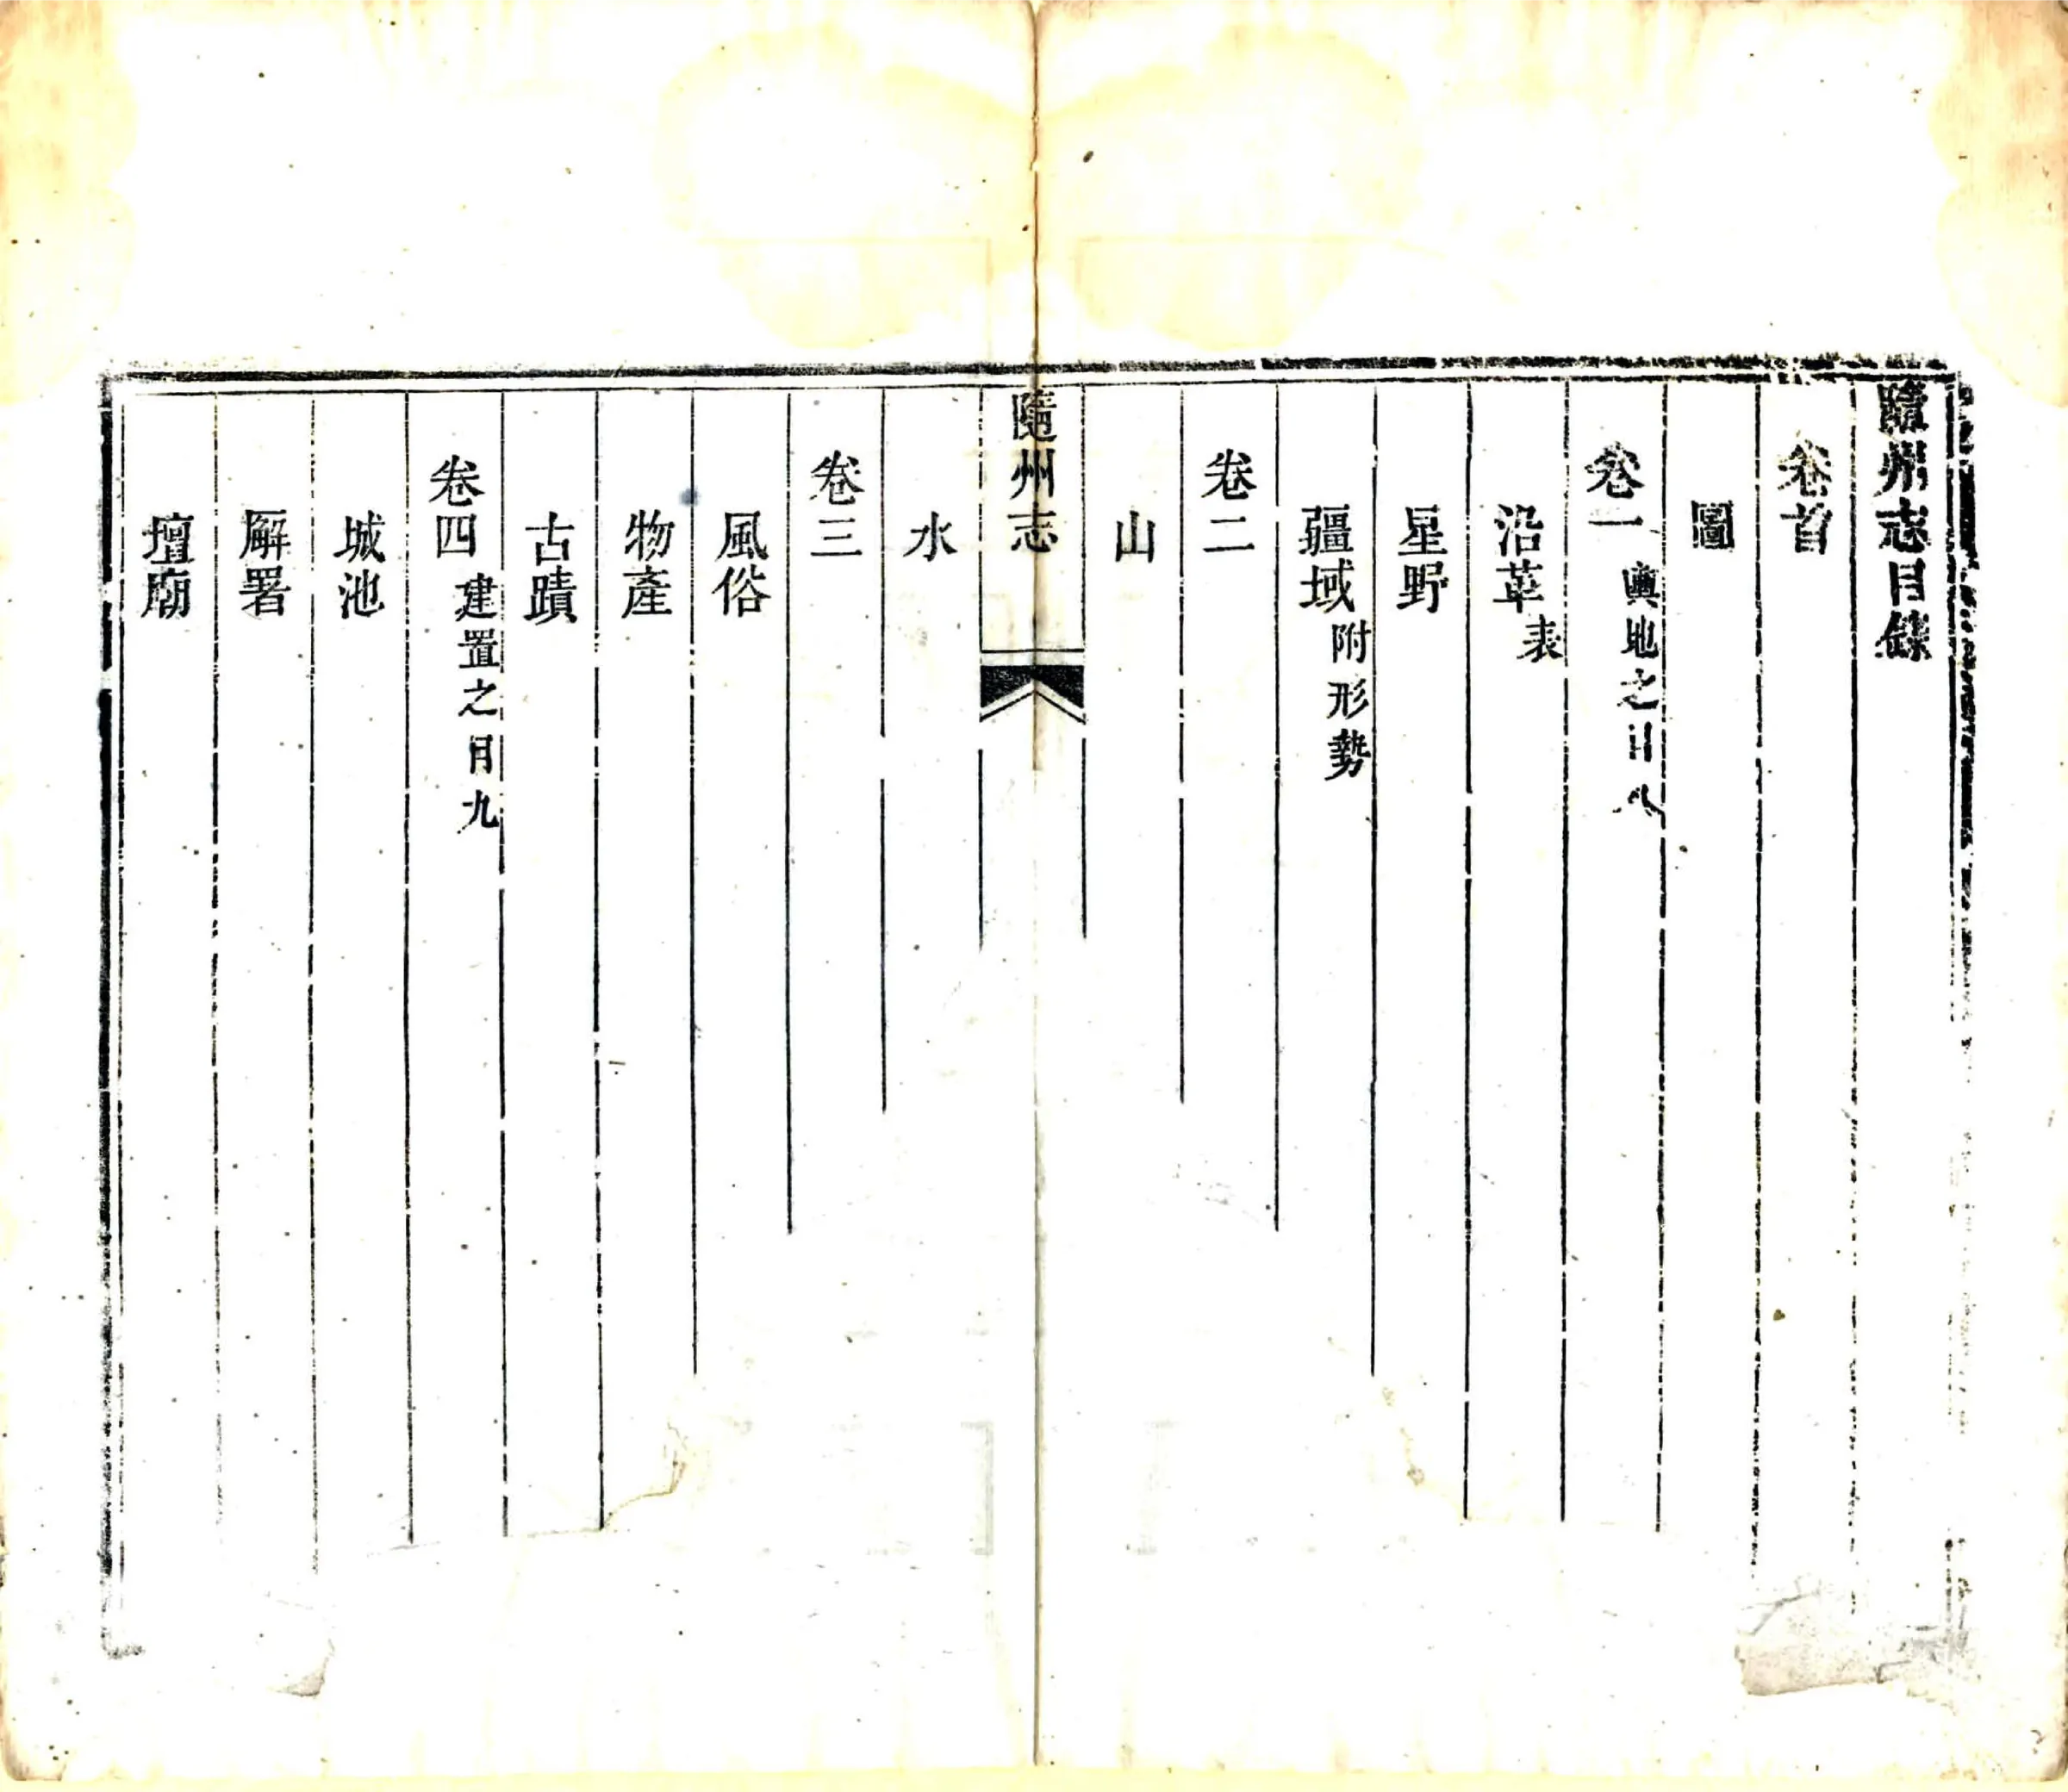 隨州志目錄
卷首
圖
卷一 輿地之目八
沿革表
星野
疆域附形勢
卷二
山
隨州志
水
卷三
風俗
物產
古蹟
卷四 建置之目九
城池
廨署
壇廟